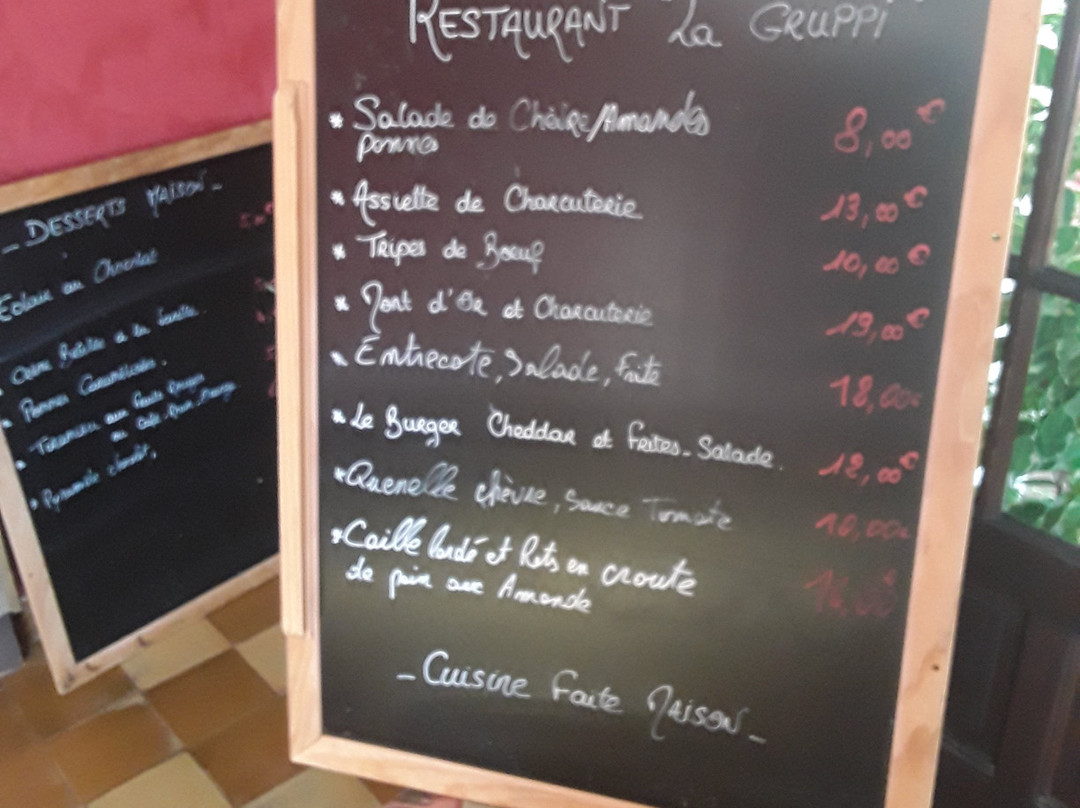 RESTAURANT "La GRUPPI"
* Salade de Chèvre/Amandes 8,00€
pommes
* Assiette de Charcuterie 13,00€
* Tripes de Boeuf 10,00€
* Mont d'Or et Charcuterie 19,00€
* Entrecote, Salade, frite 18,00€
* Le Burger Cheddar et frites-Salade. 12,00€
* Quenelle chèvre, Sauce Tomate 10,00€
* Caille lardé et Rôts en croute
de pain aux Amande
- Cuisine Faite MAISON -
- DESSERTS MAISON -
Eclair au Chocolat
Creme Brûlée à la Vanille.
* Pommes Caramélisées.
* Tiramisu aux fruits Rouges
au Café